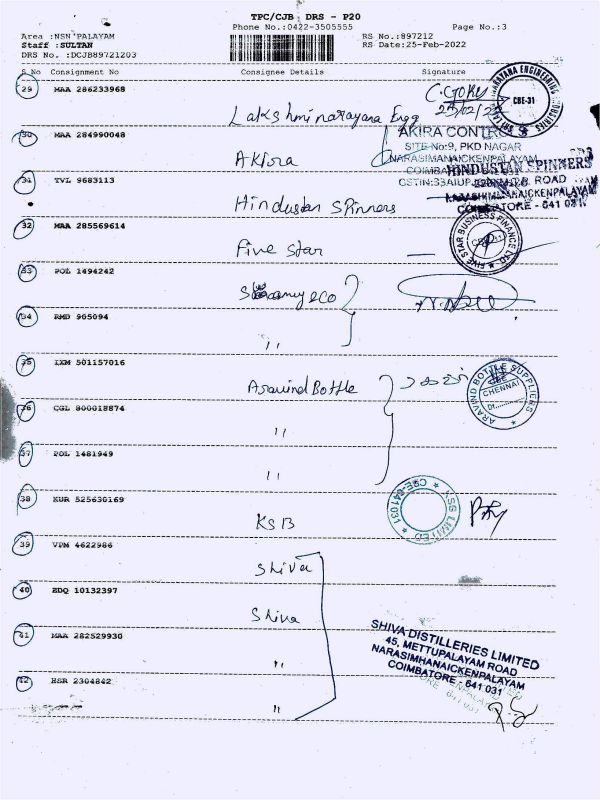 TPC/CJB DRS - P20
Phone No.:0422-3505555 Page No.:3
Area :NSN PALAYAM RS No.:897212
Staff :SULTAN RS Date:25-Feb-2022
DRS No. :DCJB89721203
S No Consignment No Consignee Details Signature
29 MAA 286233968
Lakshminarayana Engg
C.Goku
25/02/22
CBE-31
30 MAA 284990048
Akira
AKIRA CONTROLS
SITE No:9, PKD NAGAR
NARASIMANAICKENPALAYAM
31 TVL 9683113
Hindustan Spinners
HINDUSTAN SPINNERS
ROAD
COIMBATORE - 641 031
32 MAA 285569614
Five Star
FIVE STAR BUSINESS FINANCE LTD.
33 POL 1494242
eco
34 RMD 905094
"
35 IXM 501157016
Aravind Bottle
ARAVIND BOTTLE SUPPLIERS
CHENNAI
36 CGL 800018874
"
37 POL 1481949
"
38 KUR 525630169
KSB
LIMITED
CBE-641 031
39 VPM 4622986
Shiva
40 EDQ 10132397
Shiva
41 MAA 282529930
"
SHIVA DISTILLERIES LIMITED
45, METTUPALAYAM ROAD
NARASIMHANAICKENPALAYAM
COIMBATORE - 641 031
42 HSR 2304842
"